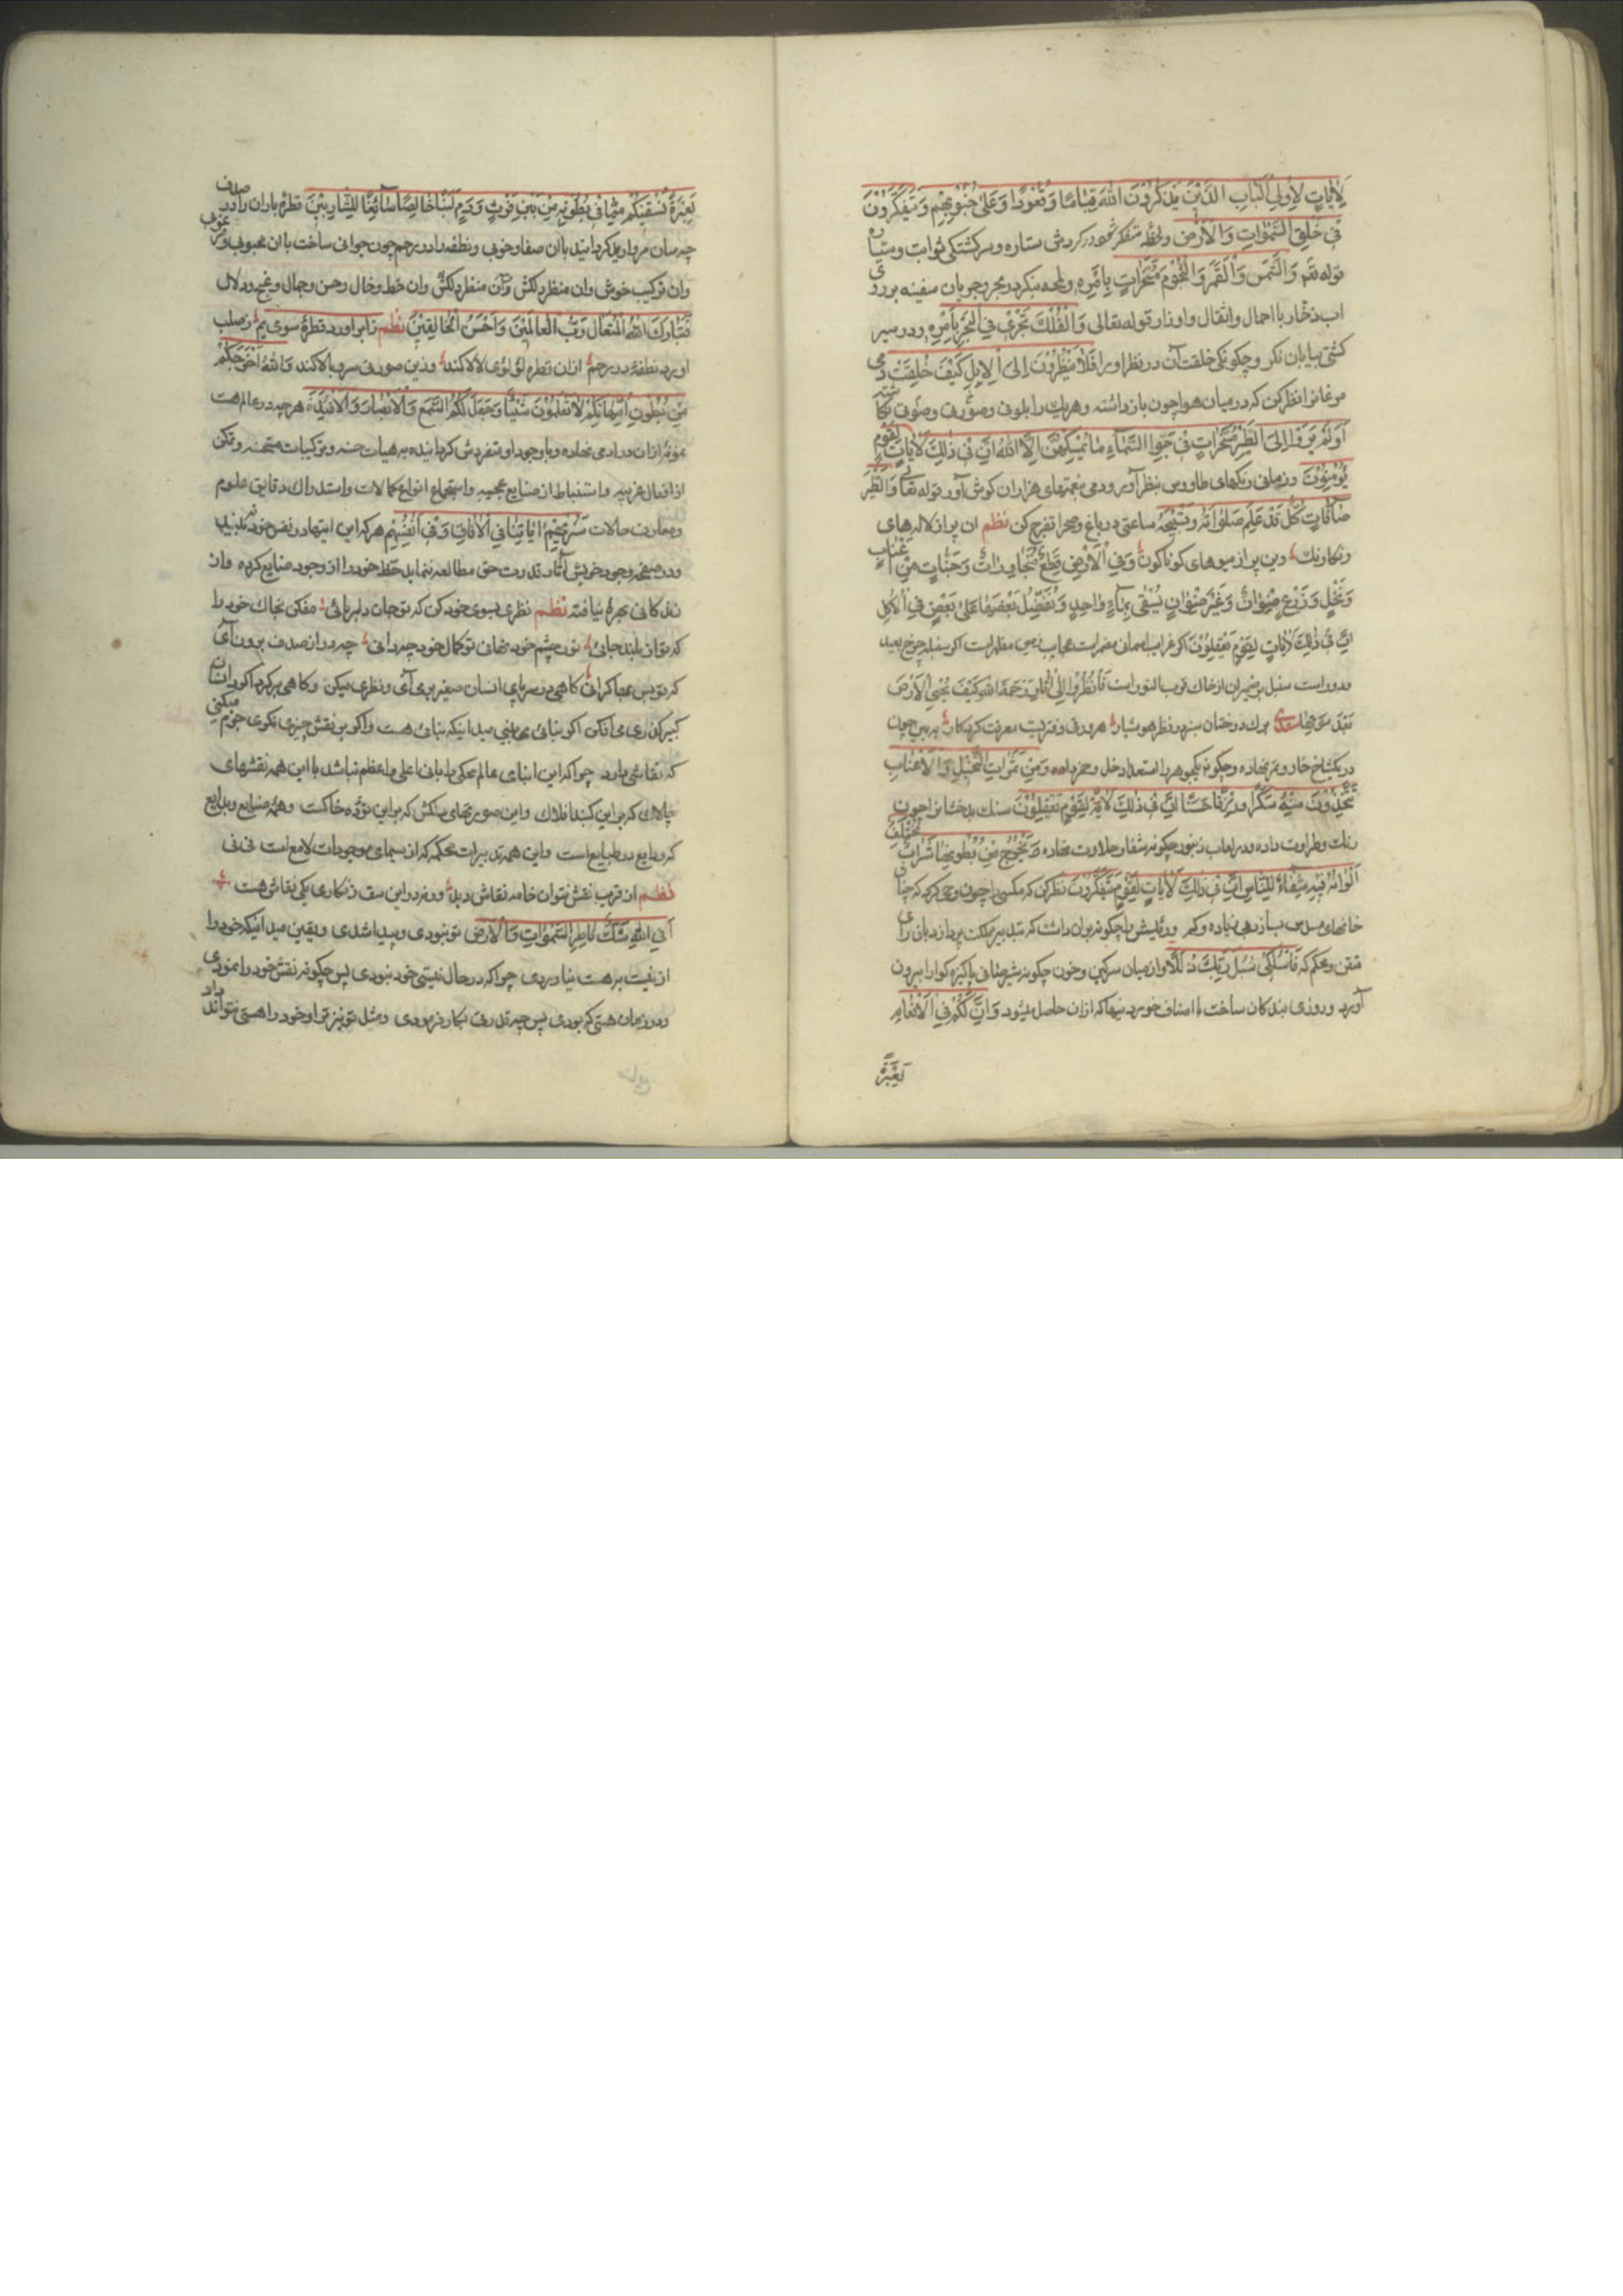 لَاٰیاتٍ لِاُولِی الْاَلْبابِ الَّذینَ یَذْکُرُونَ اللهَ قِیاماً وَقُعُوداً وَعَلیٰ جُنُوبِهِمْ وَیَتَفَکَّرُونَ
فی خَلْقِ السَّمٰواتِ وَالْاَرْضِ ولحظه متفکر شو در کردش ستاره وسرکشتکی ثوابت وسیاره
قوله تعم وَالشَّمْسَ وَالْقَمَرَ وَالنُّجُومَ مُسَخَّراتٍ بِاَمْرِهِ ولمحه بنکر در بحر وجریان سفینه بر روی
اب ذخار با احمال واثقال واوزار قوله تعالی وَالْفُلْکَ تَجْری فِی الْبَحْرِ بِاَمْرِهِ ودر سیر
کشتی بیابان نکر وچکونکی خلقت آن در نظر اور اَفَلا یَنْظُرُونَ اِلَی الْاِبِلِ کَیْفَ خُلِقَتْ دمی
مرغانرا نظر کن که در میان هوا چون بازداشته وهریک را بلونی وصورتی وصوتی نکاشته
اَوَلَمْ یَرَوْا اِلَی الطَّیْرِ مُسَخَّراتٍ فی جَوِّ السَّمآءِ ما یُمْسِکُهُنَّ اِلَّا اللهُ اِنَّ فی ذٰلِکَ لَاٰیاتٍ لِقَوْمٍ
یُؤْمِنُونَ وزمانی رنکهای طاووس بنظر آور ودمی بنغمتهای هزاران کوش آور قوله تعالی وَالطَّیْرُ
صافّاتٍ کُلٌّ قَدْ عَلِمَ صَلوٰتَهُ وَتَسْبیحَهُ ساعتی در باغ وصحرا تفرج کن نظم ان پر از لاله های
رنکارنک وین پر از میوهای کوناکون وَفِی الْاَرْضِ قِطَعٌ مُتَجاوِراتٌ وَجَنّاتٌ مِنْ اَعْنابٍ
وَنَخْلٍ وَزَرْعٍ صِنْوانٌ وَغَیْرُ صِنْوانٍ یُسْقیٰ بِمآءٍ واحِدٍ وَنُفَضِّلُ بَعْضَها عَلیٰ بَعْضٍ فِی الْاُکُلِ
اِنَّ فی ذٰلِکَ لَاٰیاتٍ لِقَوْمٍ یَعْقِلُونَ اکر غرایب اسمان مضمرات عجایب زمین مظهرات اکر سنبله چرخ بعید
ودور است سنبل بر ضمیران از خاک قریب النور است فَانْظُرُوا اِلیٰ اٰثارِ رَحْمَةِ اللهِ کَیْفَ یُحْیِی الْاَرْضَ
بَعْدَ مَوْتِها سعدی برک درختان سبز در نظر هوشیار هر ورقی دفتریست معرفت کردکار ببین چون
در یکشاخ خار وتمر نهاده وچکونه یکجوهر را استعداد خل وخمر داده وَمِنْ ثَمَراتِ النَّخیلِ وَالْاَعْنابِ
تَتَّخِذُونَ مِنْهُ سَکَراً وَرِزْقاً حَسَناً اِنَّ فی ذٰلِکَ لَاٰیَةً لِقَوْمٍ یَعْقِلُونَ سنک بدخشانرا چون
رنک وطراوت داده ودر لعاب زنبور چکونه شفا وحلاوت نهاده یَخْرُجُ مِنْ بُطُونِها شَرابٌ مُخْتَلِفٌ
اَلْوانُهُ فیهِ شِفآءٌ لِلنّاسِ اِنَّ فی ذٰلِکَ لَاٰیاتٍ لِقَوْمٍ یَتَفَکَّرُونَ نظر کن که مکسی را چون وحی کرد که چنان
خانهای مسدس بسازد بی زیاده وکم ورئیسش را چکونه بران داشت که بتدبیر مملکت پردازد بان رای
متقن ومحکم که فَاسْلُکی سُبُلَ رَبِّکِ ذُلُلاً واز میان سرکین وخون چکونه شیر صافی پاکیزه کوارا بیرون
آورد وروزی بندکان ساخت با اصناف خوردنیها که ازان حاصل میشود وَاِنَّ لَکُمْ فِی الْاَنْعامِ
لَعِبْرَةً
لَعِبْرَةً نُسْقیکُمْ مِمّا فی بُطُونِهِ مِنْ بَیْنِ فَرْثٍ وَدَمٍ لَبَناً خالِصاً سآئِغاً لِلشّارِبینَ قطره باران را در صدف
چه سان مروارید کردانید با ان صفا وخوبی ونطفه را در رحم چون جوانی ساخت با ان محبوبی ومرغوبی
وان ترکیب خوش وان منظر دلکش وان خط وخال وحسن وجمال وغنج ودلال
فَتَبارَکَ اللهُ الْمُتَعالُ رَبُّ الْعالَمینَ وَاَحْسَنُ الْخالِقینَ نظم زابر اورد قطره سوی یم زصلب
اورد نطفه در رحم ازان قطره لؤلؤی لالا کند وزین صورتی سرو بالا کند وَاللهُ اَخْرَجَکُمْ
مِنْ بُطُونِ اُمَّهاتِکُمْ لا تَعْلَمُونَ شَیْئاً وَجَعَلَ لَکُمُ السَّمْعَ وَالْاَبْصارَ وَالْاَفْئِدَةَ هر چه در عالم هست
نمونهٔ ازان در ادمی نهاده وبا وجود او متفردش کردانیده به هیات حسنه وترکیبات مستحسنه وتمکن
از افعال غریبه واستنباط از صنایع عجیبه واستجماع انواع کمالات واستدراک دقایق علوم
ومعارف حالات سَنُریهِمْ اٰیاتِنا فِی الْاٰفاقِ وَفی اَنْفُسِهِمْ هر که این ایتها در نفس خود نه بیند
ودر صفحه وجود خویش آثار قدرت حق مطالعه ننماید حظ خود را از وجود ضایع کرده واز
زندکانی بهرهٔ نیافته نظم نظری بسوی خود کن که تو جان دلربائی مفکن بخاک خود را
که تو از بلند جائی تو زچشم خود نهانی تو کمال خود چه دانی چو در از صدف برون آی
که تو بس کرانبهائی کاهی در سراپای انسان صغیر بدرآی ونظری میکن وکاهی بر کرد اکوان انسان
کبیر کذری می افکن اکر بنائی می بینی میدانیکه بنائی هست واکر بر نقش چیزی نکری جزم میکنی
که نقاشی دارد چرا که این ابنای عالم محکم را بانی اعلی واعظم نباشد با این همه نقشهای
چالاک که بر این کنبد افلاک واین صورتهای دلکش که بر این توده خاکست وهمه صنایع وبدایع
که ودایع در طبایع است واین همه تدبیرات محکمه که از سیمای موجودات لامع است نی نی
نظم از غرب نقش نتوان خامه نقاش دید ورنه در این سقف زنکاری یکی نقاش هست
اَفِی اللهِ شَکٌّ فاطِرِ السَّمٰواتِ وَالْاَرْضِ تو نبودی وپیدا شدی ویقین میدانیکه خود را
از نیست بهست نیاوردی چرا که در حال نیستی خود نبودی پس چکونه نقش خود را نمودی
ودر زمان هستی که بودی پس چه قدرت بکار فرمودی ومثل تو نیز ترا وخود را هستی نتواند داد